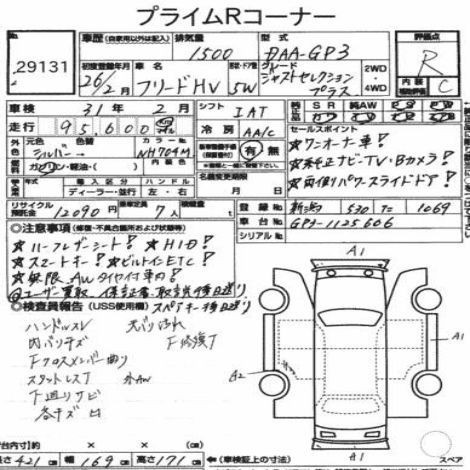 プライムRコーナー
29131
車歴 (自家用以外は記入) 排気量 1500 型式 DAA-GP3 評価点 R
初度登録年月 26/2月 車名 フリードHV ドア・形状 5W グレード ジャストセレクション プラス 2WD・4WD 内装 補助評価 C
車検 31年 2月 シフト IAT SR 純AW
走行 95,600 冷房 AA/C セールスポイント
外色 元色 シルバー 色替 カラーNo NH704M 有・無 ★ワンオーナー車!
燃料 ガソリン・軽油・( ) 名義変更期限 ★純正ナビ・TV・Bカメラ!
輸入区分 ハンドル ディーラー・並行 左・右 月 日 ★両側パワースライドドア!
リサイクル預託金 12090円 乗車定員 7人 積載量 kg
登録No 新潟 530 ナ 1069
車台No GP3-1125606
シリアルNo
◎注意事項 (修復・不具合箇所および状態等)
★ハーフレザーシート! ★HID!
★スマートキー! ★ビルトインETC!
★無限AWタイヤ付車内!
◎ユーザー買取 保証書、取説後日送り
◎検査員報告 (USS使用欄) スペアキー後日送り
ハンドルスレ 天バリ汚れ
内バリキズ F修復T
Fクロスメンバー曲り
スタッドレスT 外AW
F廻りサビ
各キズ凹
A1
A1
A2
A1
荷台内寸( ) × ×
長さ 421cm 幅 169cm 高さ 171cm ←(車検証上の寸法) スペア